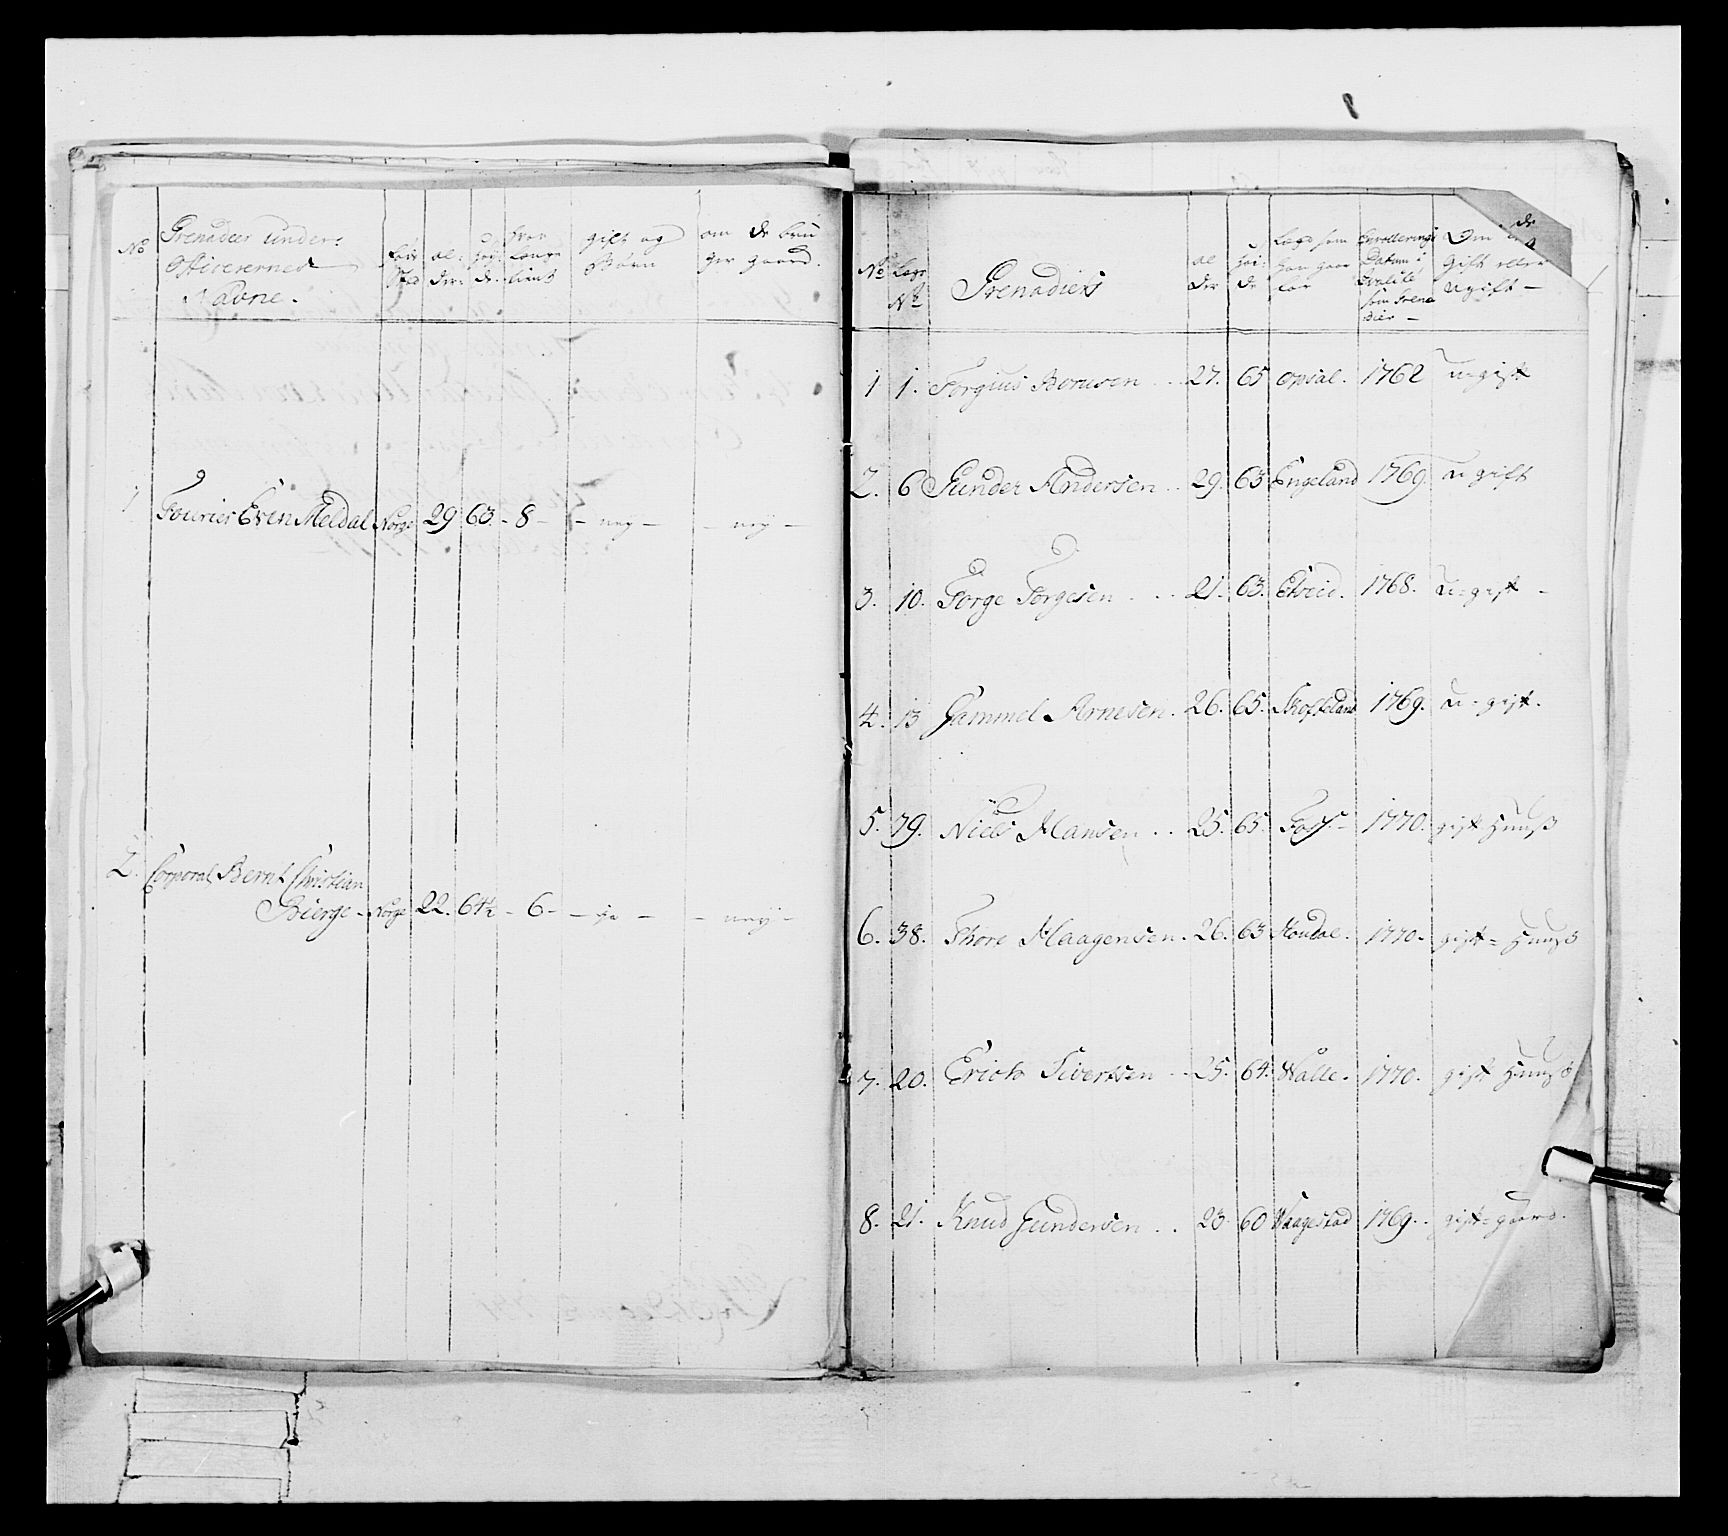 No
Grenadeer under:
Officerernes
Navne.
al:
der.
høi:
de.
hvor
Længe
tient
gift og
Børn
om de bru
ger gaard.
1
Fourier Even Meldal Norge 29 63. - 8 - - ney - - ney -
2. Corporal Bernt Christian
Bierge - Norge 22. 64½ - 6 - - ja - - ney -
No Lægs
No
Grenadiers
al
der
høi:
de
Lægd som
Datum i
som Grena
dier -
Om de
gift eller
ugift -
1 1. Torgius Berusen . . . 27. 65 Opsal. 1762 u-gift
2. 6 Gunder Andersen . . 29. 63 Engeland 1769. u-gift
3. 10. Torge Torgesen . . . 21. 63. Eveid. 1768. u-gift -
4. 13 Gammel Arnesen. 26. 65. Skofteland 1769. u-gift.
5. 79. Niels Hansen . . 25. 65. Foss. - 1770. gift huuß
6. 38. Thore Haagensen. 26. 63 Houdal. 1770. gift = huuß
7. 20. Erich Sivertsen . . 25. 64. Walle. 1770. gift huuß
8. 21. Knud Gundersen . . 23. 60 Waagestad 1769. gift = gaard.